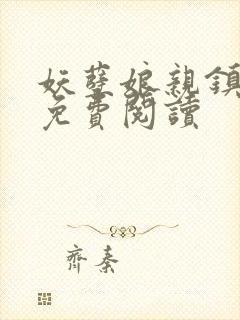 妖孽娘親鎮
免費閱讀
齊秦